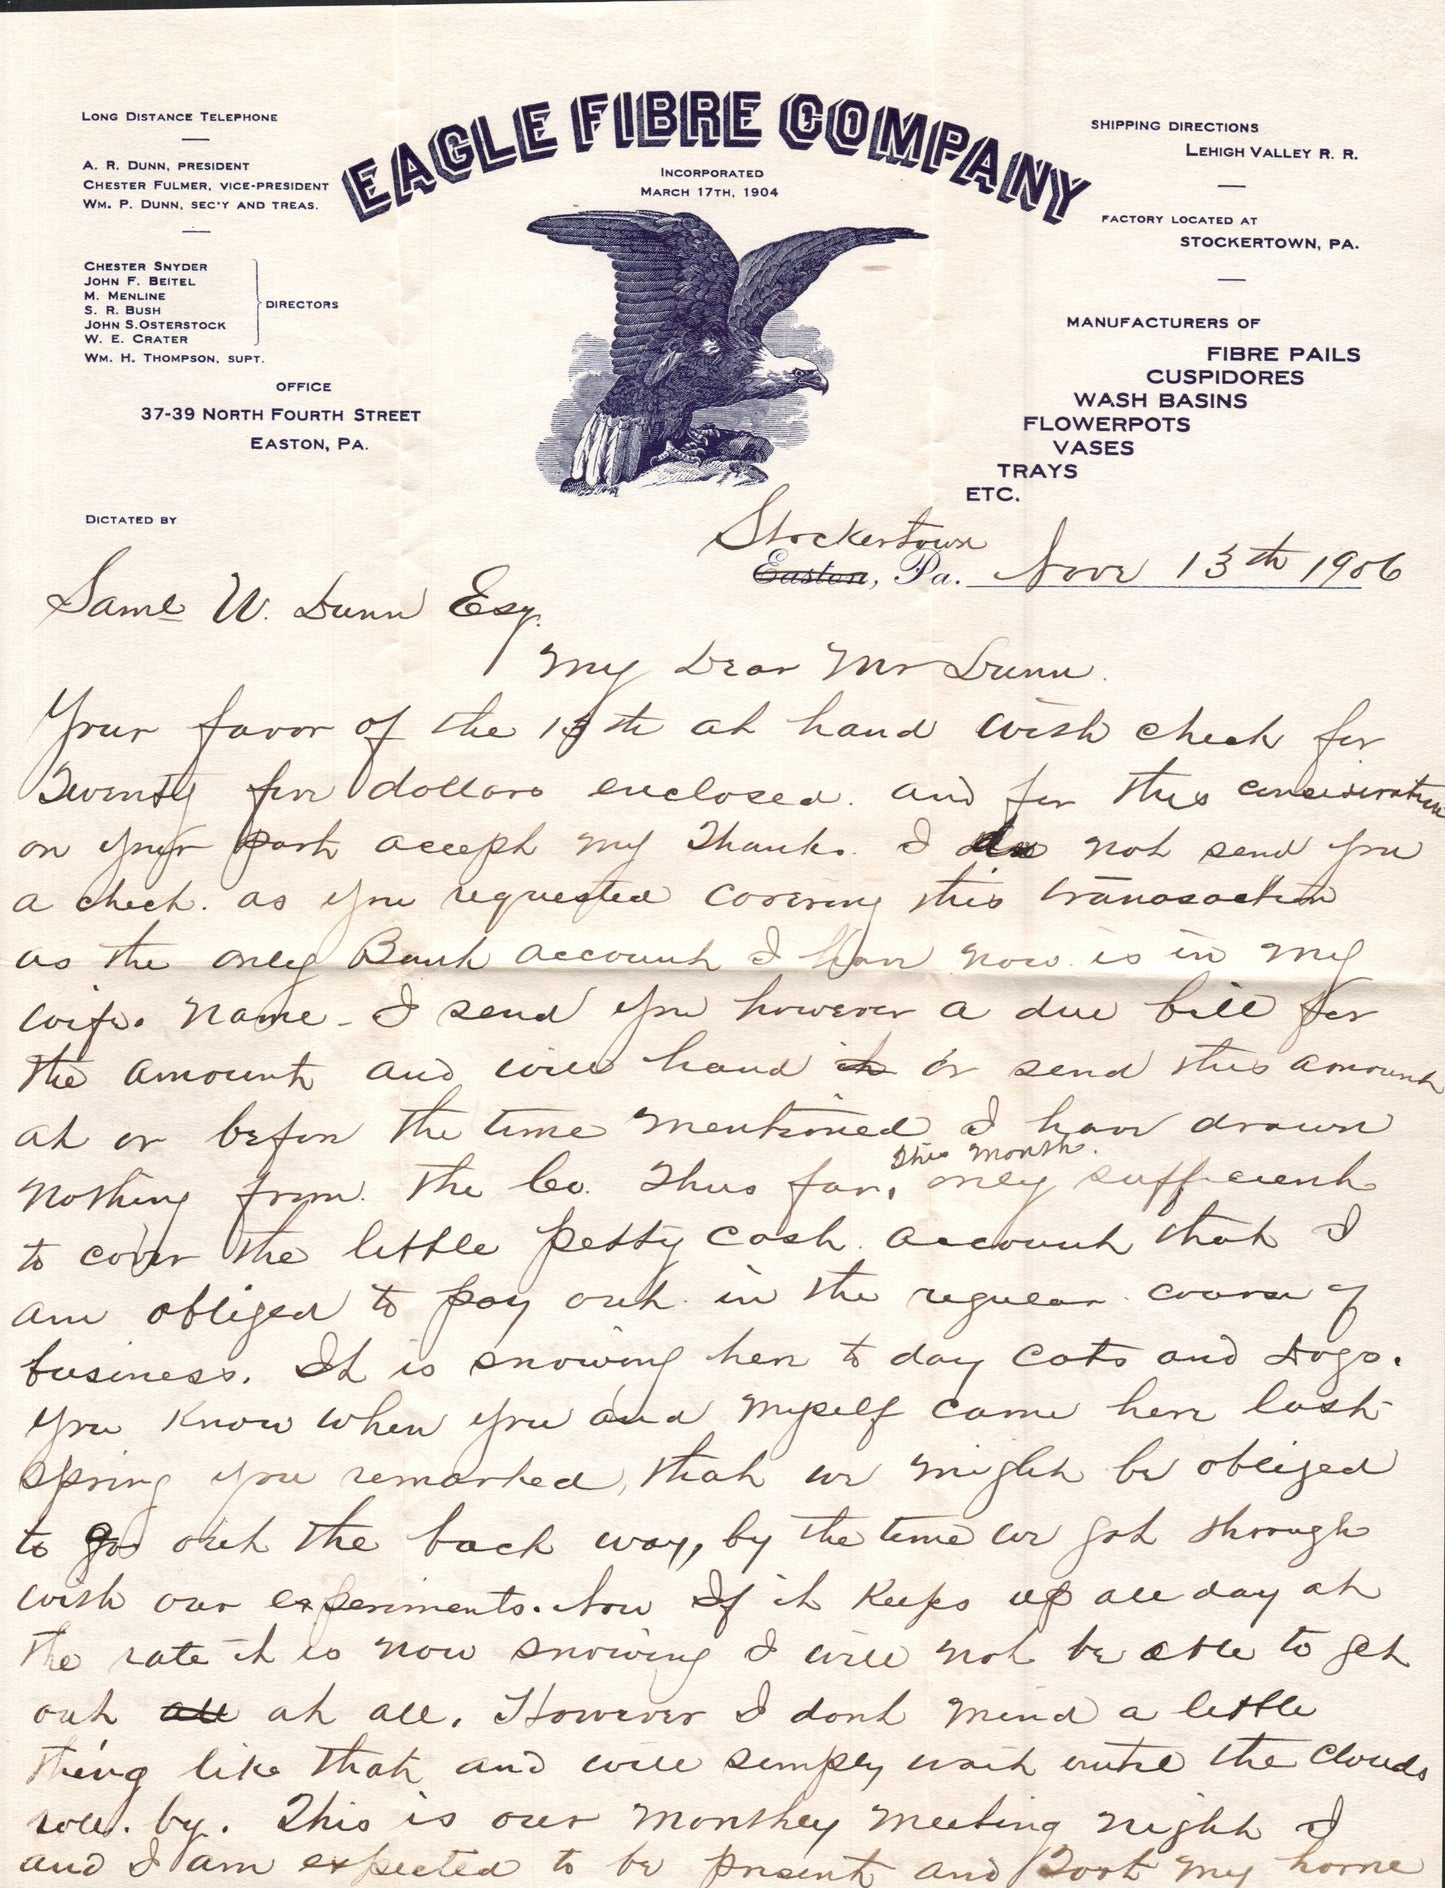 EAGLE FIBRE COMPANY
INCORPORATED
MARCH 17TH, 1904
LONG DISTANCE TELEPHONE
A. R. DUNN, PRESIDENT
CHESTER FULMER, VICE-PRESIDENT
WM. P. DUNN, SEC'Y AND TREAS.
CHESTER SNYDER
JOHN F. BEITEL
M. MENLINE
S. R. BUSH
JOHN S. OSTERSTOCK
W. E. CRATER
DIRECTORS
WM. H. THOMPSON, SUPT.
OFFICE
37-39 NORTH FOURTH STREET
EASTON, PA.
DICTATED BY
SHIPPING DIRECTIONS
LEHIGH VALLEY R. R.
FACTORY LOCATED AT
STOCKERTOWN, PA.
MANUFACTURERS OF
FIBRE PAILS
CUSPIDORES
WASH BASINS
FLOWERPOTS
VASES
TRAYS
ETC.
Stockertown
Easton, Pa. Nov 13th 1906
Saml W. Dunn Esq.
My Dear Mr Dunn.
Your favor of the 13th at hand with check for
Twenty five dollars enclosed. and for this consideration
on your part accept my Thanks. I do not send you
a check. as you requested covering this transaction
as the only Bank account I have now is in my
wifes name - I send you however a due bill for
the amount and will hand it or send this amount
at or before the time mentioned I have drawn
this month.
nothing from the Co. Thus far, only sufficient
to cover the little petty cash account that I
am obliged to pay out in the regular course of
business. It is snowing here to day Cats and Dogs.
You know when you and myself came here last
spring you remarked, that we might be obliged
to go out the back way, by the time we got through
with our experiments. Now If it keeps up all day at
the rate it is now snowing I will not be able to get
out all at all. However I dont mind a little
thing like that and will simply wait until the Clouds
roll by. This is our monthly meeting night I
and I am expected to be present and Took my horse